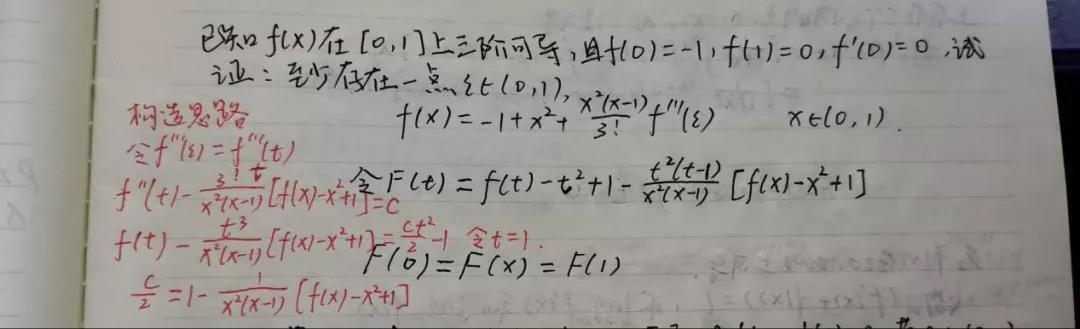 已知 f(x) 在 [0,1] 上三阶可导,且f(0)=-1,f(1)=0,f'(0)=0,试
证:至少存在一点 ξ∈(0,1),
f(x)=-1+x²+\frac{x²(x-1)}{3!}f'''(ξ) x∈(0,1).
构造思路
令f'''(ξ)=f'''(t)
f''(t)-\frac{3! t}{x²(x-1)}[f(x)-x²+1]=C
f(t)-\frac{t³}{x²(x-1)}[f(x)-x²+1]=\frac{ct²}{2}-1 令t=1.
\frac{c}{2}=1-\frac{1}{x²(x-1)}[f(x)-x²+1]
令F(t)=f(t)-t²+1-\frac{t²(t-1)}{x²(x-1)}[f(x)-x²+1]
F(0)=F(x)=F(1)